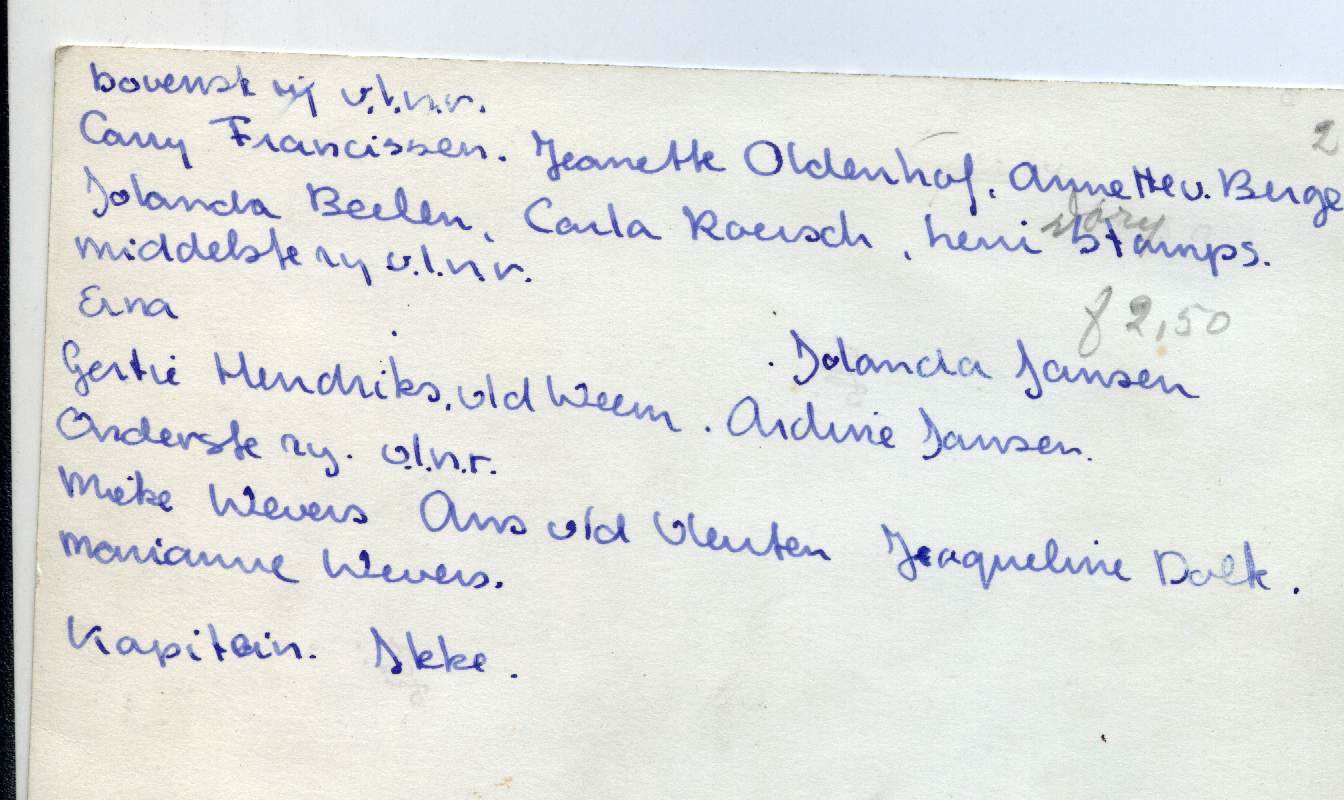 bovenst rij v.l.n.r.
2
Carry Francissen. Jeanette Oldenhof, Annette v. Berge
Jolanda Beelen, Carla Roersch, Leni Stamps.
middelste ry v.l.n.r.
Erna
f 2,50
Jolanda Jansen
Gertie Hendriks, v/d Weem. Ardine Jansen.
Onderste ry. v.l.n.r.
Mieke Wevers Ans v/d Vleuten Jeaqueline Dalk.
Marianne Wevers.
Kapitein. Ikke.